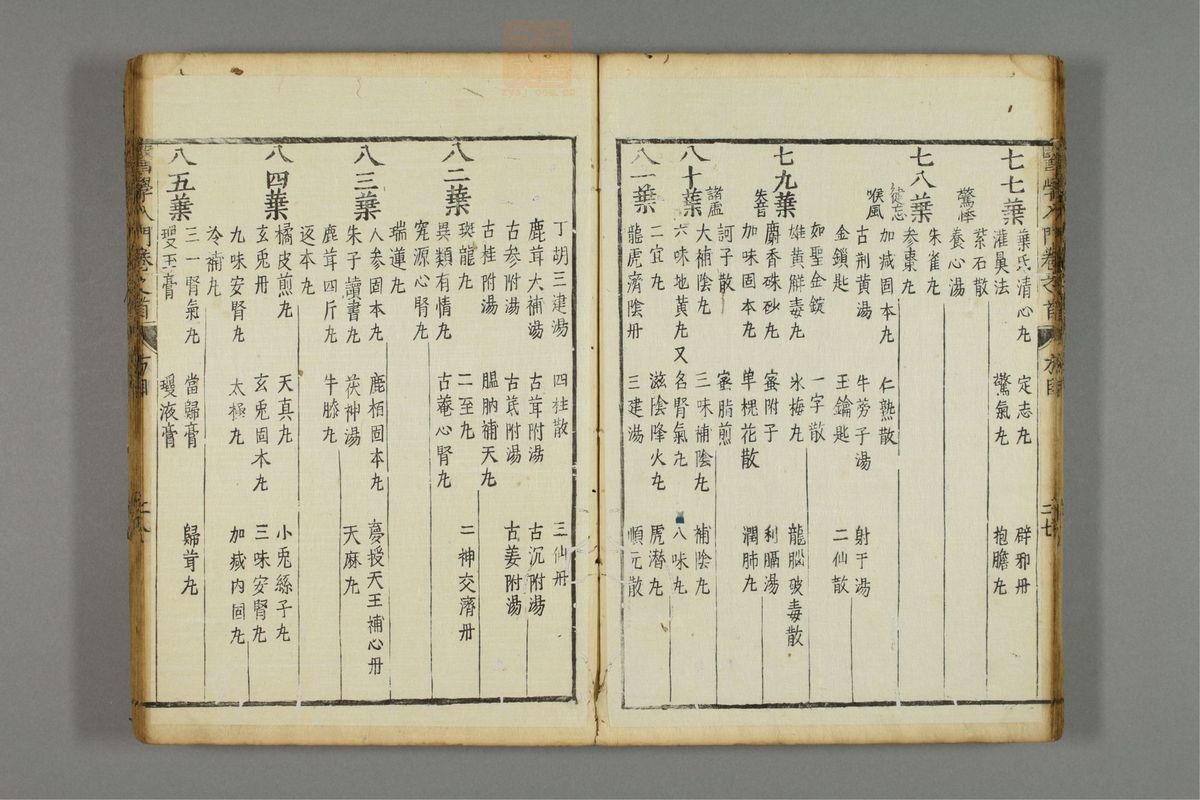 七七葉
葉氏清心丸 定志丸 辟邪丹
灌鼻法 驚氣丸 抱膽丸
紫石散
驚悸 養心湯
朱雀丸
七八葉 參棗丸
健忘 加减固本丸 仁熟散
喉風 古荆黄湯 牛蒡子湯 射干湯
金鎖匙 玉鑰匙 二仙散
如聖金錠 一字散
雄黄解毒丸 氷梅丸 龍腦破毒散
七九葉 麝香硃砂丸 蜜附子 利膈湯
失音 加味固本丸 单槐花散 潤肺丸
訶子散 蜜脂煎
諸虛 大補陰丸 三味補陰丸 補陰丸
八十葉 六味地黄丸又名腎氣丸 八味丸
二宜丸 滋陰降火丸 虎潜丸
八一葉 龍虎濟陰丹 三建湯 順元散
丁胡三建湯 四柱散 三仙丹
鹿茸大補湯 古茸附湯 古沉附湯
古参附湯 古芪附湯 古姜附湯
古桂附湯 膃肭補天丸
八二葉 斑龍丸 二至丸 二神交濟丹
異類有情丸 古菴心腎丸
究源心腎丸
瑞蓮丸
八三葉 人参固本丸 鹿栢固本丸 慶授天王補心丹
朱子讀書丸 茯神湯 天麻丸
鹿茸四斤丸 牛膝丸
返本丸
八四葉 橘皮煎丸 天真丸 小兎絲子丸
玄兎丹 玄兎固本丸 三味安腎丸
九味安腎丸 太極丸 加减内固丸
冷補丸
八五葉 三一腎氣丸 當歸膏 歸茸丸
瓊玉膏 瓊液膏